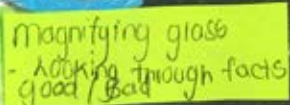 Magnifying glass
- Looking through facts
good / Bad